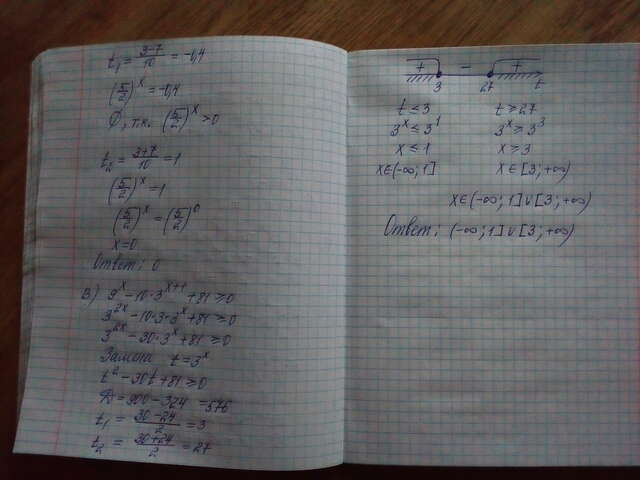 t₁ = (3-7)/10 = -0,4
(5/2)ˣ = -0,4
∅, т.к. (5/2)ˣ > 0
t₂ = (3+7)/10 = 1
(5/2)ˣ = 1
(5/2)ˣ = (5/2)⁰
x = 0
Ответ: 0
в) 9ˣ - 10·3ˣ⁺¹ + 81 ≥ 0
3²ˣ - 10·3·3ˣ + 81 ≥ 0
3²ˣ - 30·3ˣ + 81 ≥ 0
Замена t = 3ˣ
t² - 30t + 81 ≥ 0
D = 900 - 324 = 576
t₁ = (30-24)/2 = 3
t₂ = (30+24)/2 = 27
+ - +
3 27 t
t ≤ 3 t ≥ 27
3ˣ ≤ 3¹ 3ˣ ≥ 3³
x ≤ 1 x ≥ 3
x∈(-∞; 1] x∈[3; +∞)
x∈(-∞; 1]∪[3; +∞)
Ответ: (-∞; 1]∪[3; +∞)